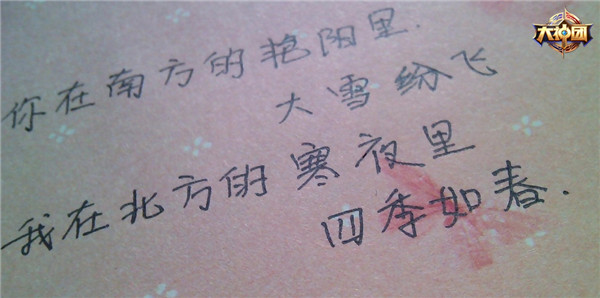 大神团
你在南方的艳阳里.
大雪纷飞
我在北方的寒夜里
四季如春.